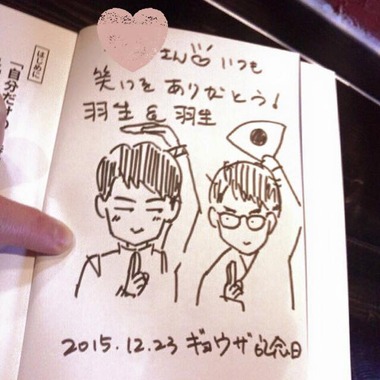 さん いつも
笑いをありがとう!
羽生 & 羽生
2015.12.23 ギョウザ記念日
はじめに
「自分だけの